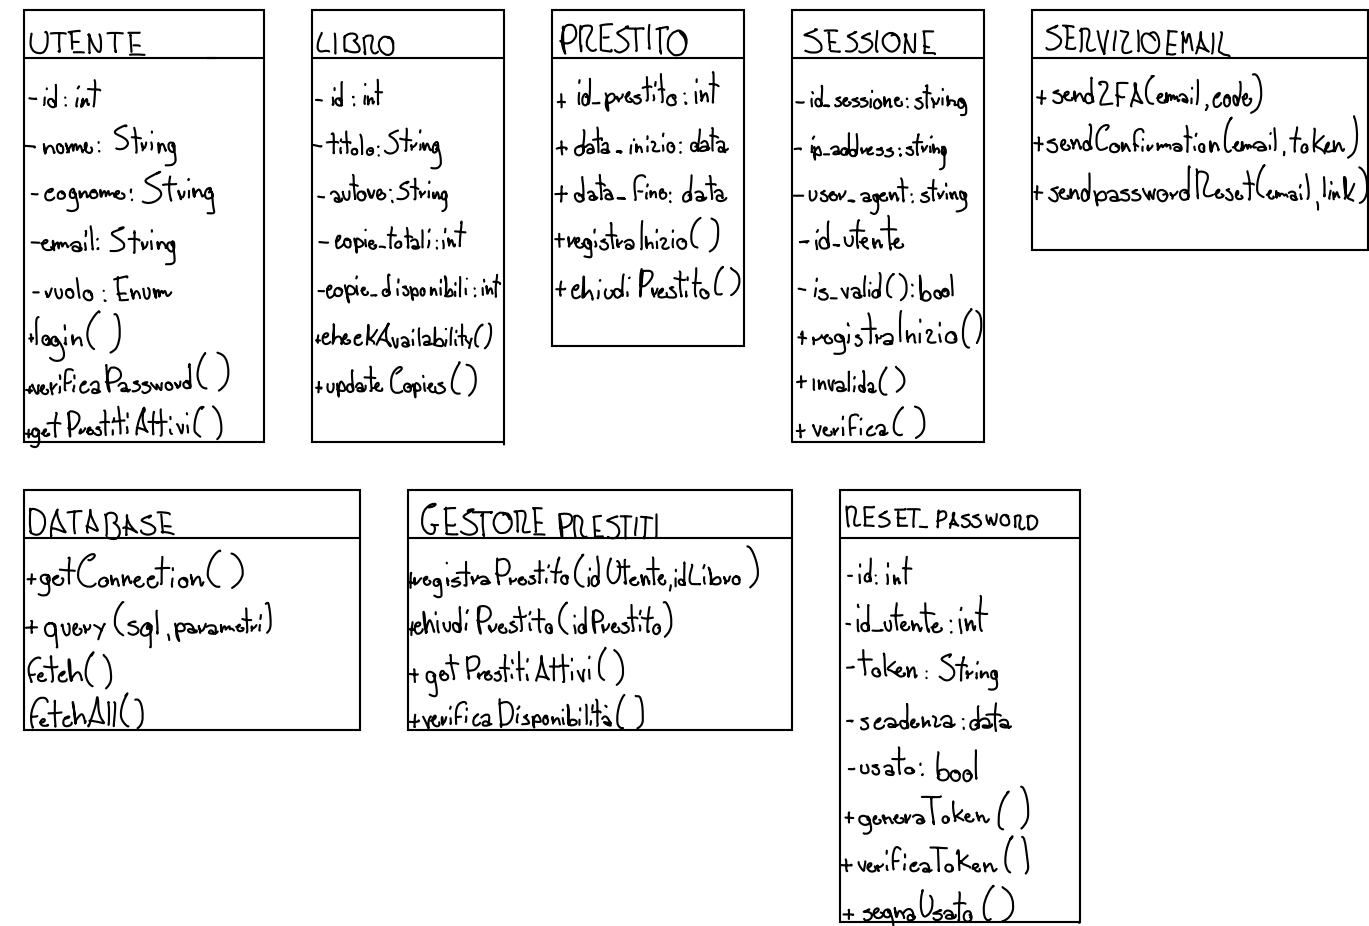 UTENTE
- id: int
- nome: String
- cognome: String
- email: String
- ruolo: Enum
+ login()
+ verificaPassword()
+ getPrestitiAttivi()
LIBRO
- id: int
- titolo: String
- autore: String
- copie_totali: int
- copie_disponibili: int
+ checkAvailability()
+ updateCopies()
PRESTITO
+ id_prestito: int
+ data_inizio: data
+ data_fine: data
+ registraInizio()
+ chiudiPrestito()
SESSIONE
- id_sessione: string
- ip_address: string
- user_agent: string
- id_utente
- is_valid(): bool
+ registraInizio()
+ invalida()
+ verifica()
SERVIZIOEMAIL
+ send2FA(email, code)
+ sendConfirmation(email, token)
+ sendpasswordReset(email, link)
DATABASE
+ getConnection()
+ query(sql, parametri)
fetch()
fetchAll()
GESTORE PRESTITI
+ registraPrestito(idUtente, idLibro)
+ chiudiPrestito(idPrestito)
+ getPrestitiAttivi()
+ verificaDisponibilità()
RESET_PASSWORD
- id: int
- id_utente: int
- token: String
- scadenza: data
- usato: bool
+ generaToken()
+ verificaToken()
+ segnaUsato()